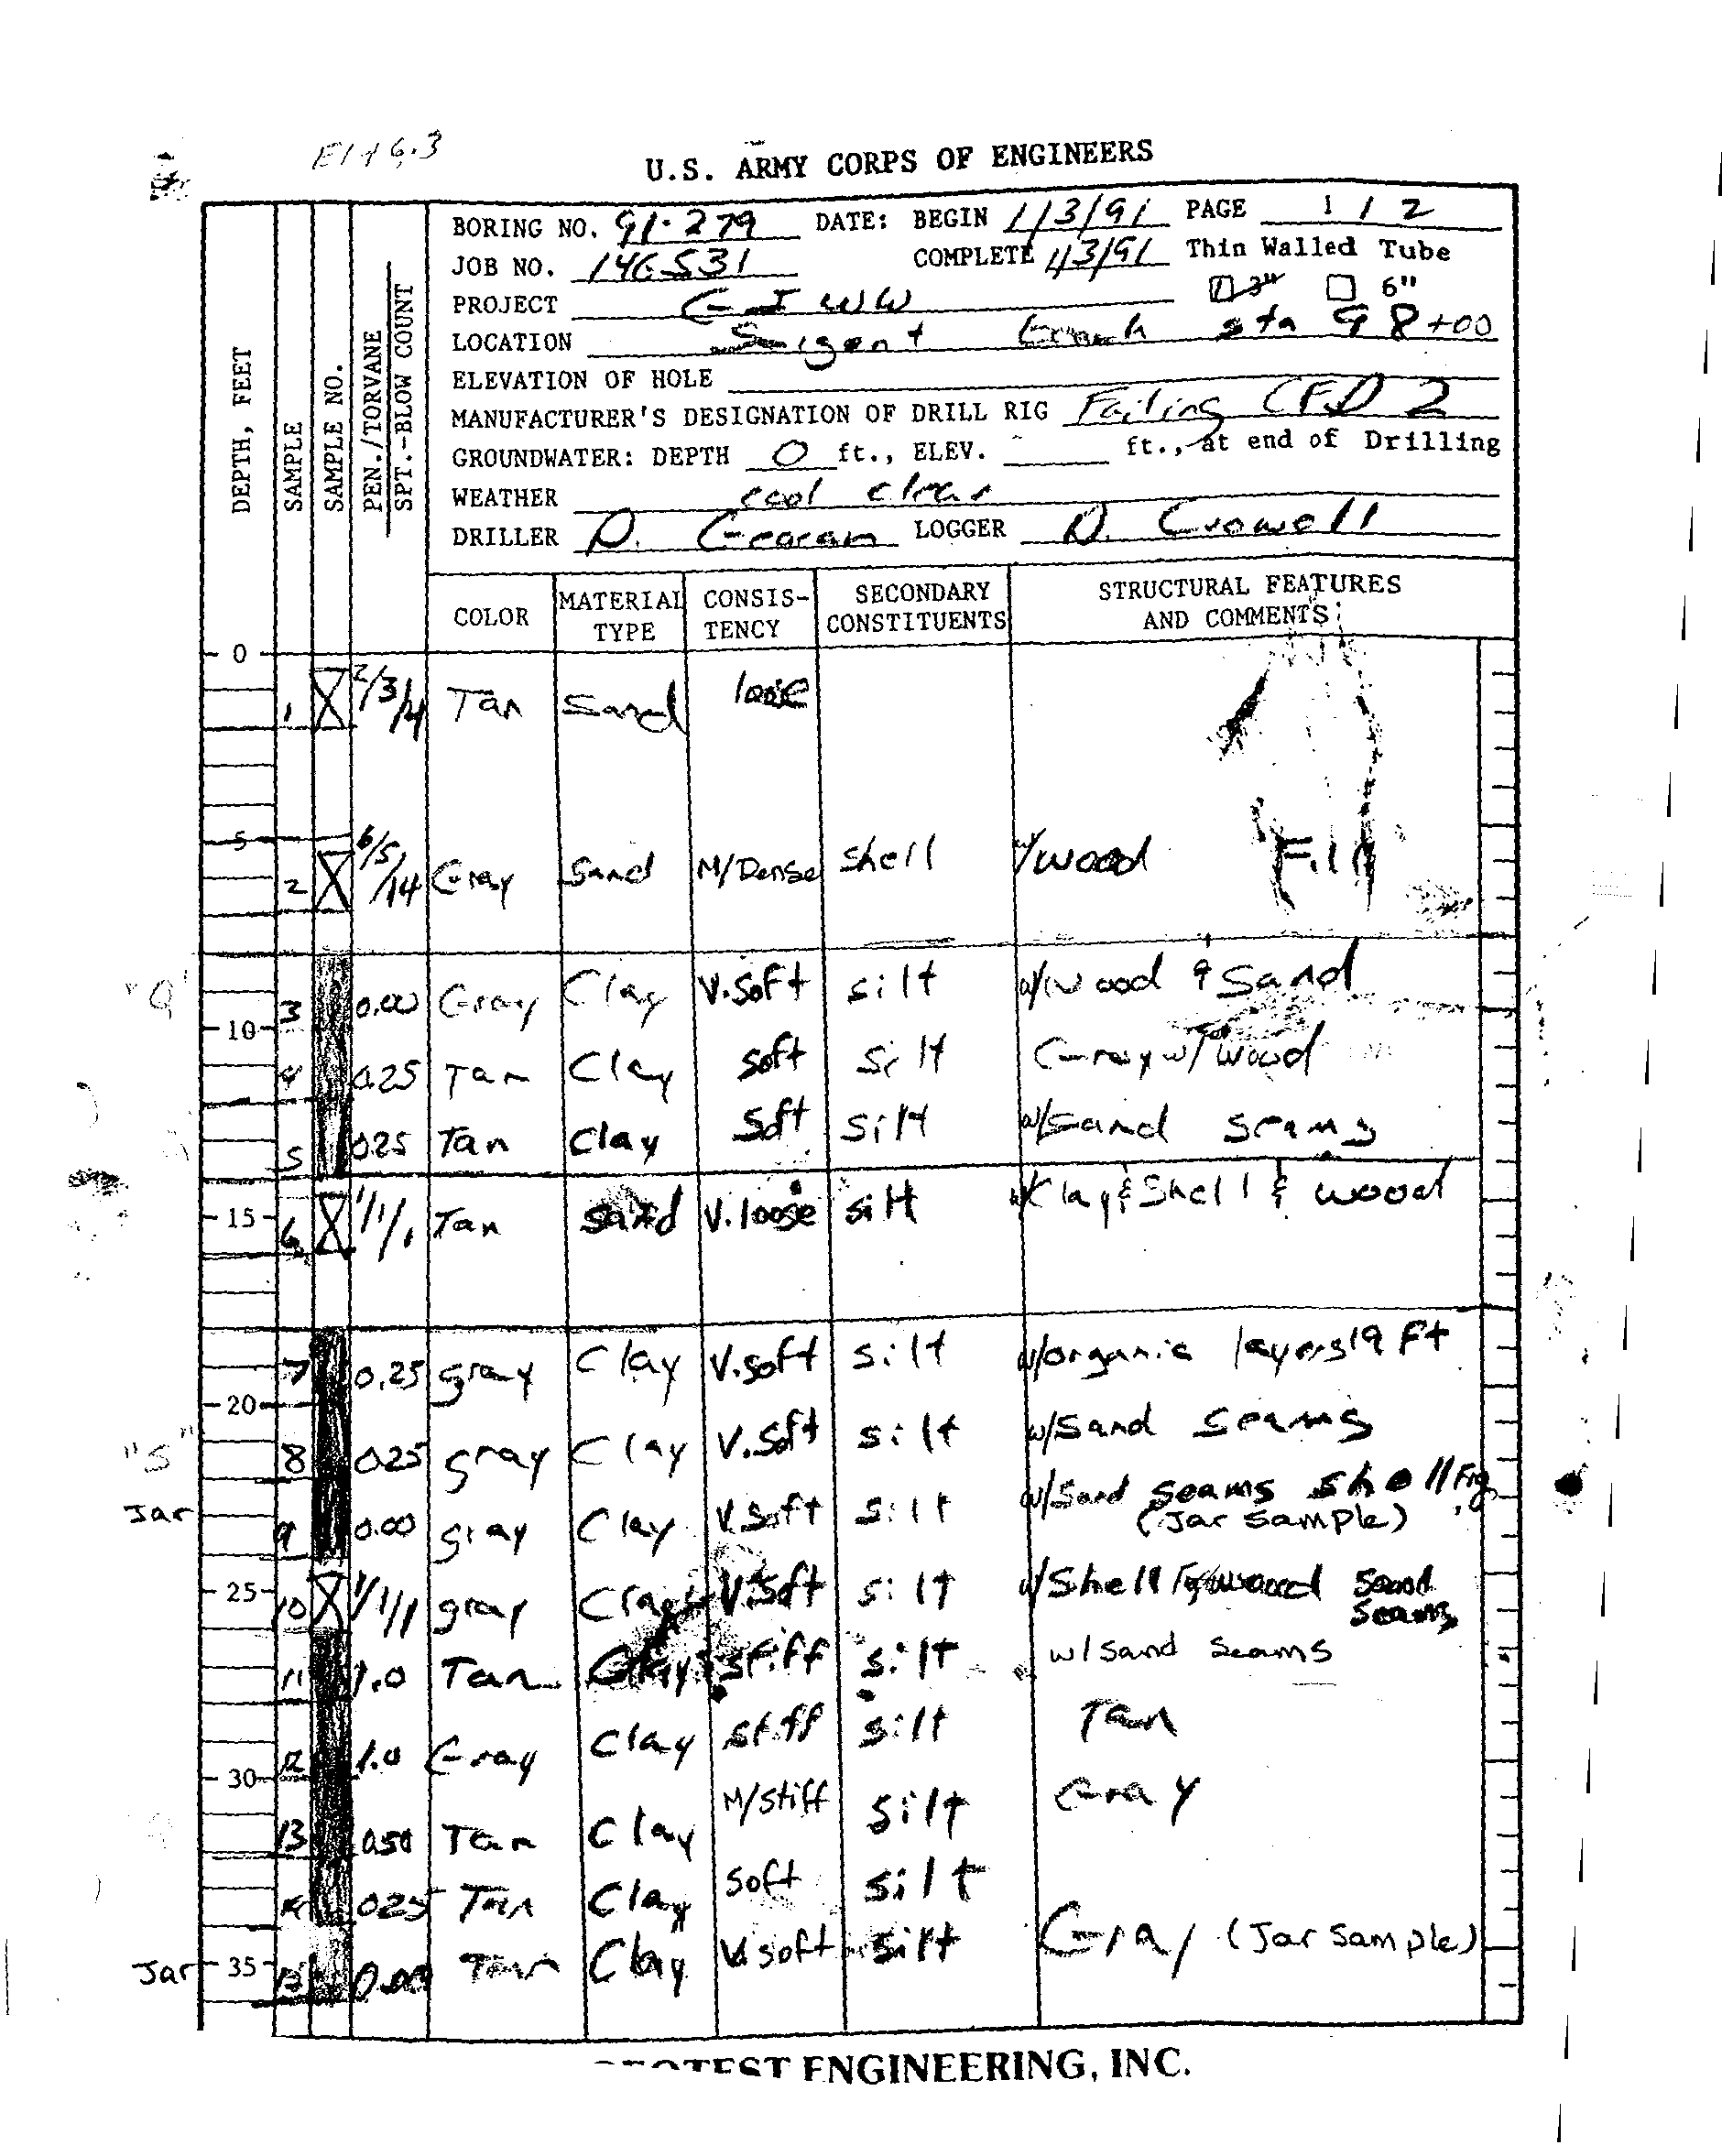 El +6.3
U.S. ARMY CORPS OF ENGINEERS
BORING NO. 91-279 DATE: BEGIN 1/3/91 PAGE 1 / 2
JOB NO. 146531 COMPLETE 1/3/91 Thin Walled Tube
3" 6"
PROJECT GIWW
LOCATION Sargent sta 98+00
ELEVATION OF HOLE
MANUFACTURER'S DESIGNATION OF DRILL RIG Failing CFD 2
GROUNDWATER: DEPTH 0 ft., ELEV. ft., at end of Drilling
WEATHER cool clear
DRILLER D. LOGGER D. Crowell
DEPTH, FEET
SAMPLE
SAMPLE NO.
PEN./TORVANE
SPT.-BLOW COUNT
COLOR MATERIAL TYPE CONSIS-TENCY SECONDARY CONSTITUENTS STRUCTURAL FEATURES AND COMMENTS
0
1 2/3/4 Tan Sand loose
5
2 6/5/14 Gray Sand M/Dense Shell w/wood Fill
"Q" 3 0.00 Gray Clay V.Soft silt w/wood & Sand
10
4 0.25 Tan Clay soft silt Gray w/wood
5 0.25 Tan Clay Soft silt w/sand seams
15
6 1/1/1 Tan sand V.loose silt w/Clay & Shell & wood
7 0.25 gray Clay V.soft silt w/organic layers 19 Ft
20
"S" 8 0.25 gray Clay V.Soft silt w/Sand seams
Jar 9 0.00 gray Clay V.Soft silt w/Sand seams shell Frg.
(Jar Sample)
25
10 1/1/1 gray Clay V.Soft silt w/Shell Frg wood sand seams
11 1.0 Tan Clay stiff silt w/sand seams
12 1.0 Gray Clay stiff silt Tan
30
13 0.50 Tan Clay M/stiff silt Gray
14 0.25 Tan Clay soft silt
Jar 35 15 0.00 Tan Clay V.soft silt Gray (Jar Sample)
ENGINEERING, INC.